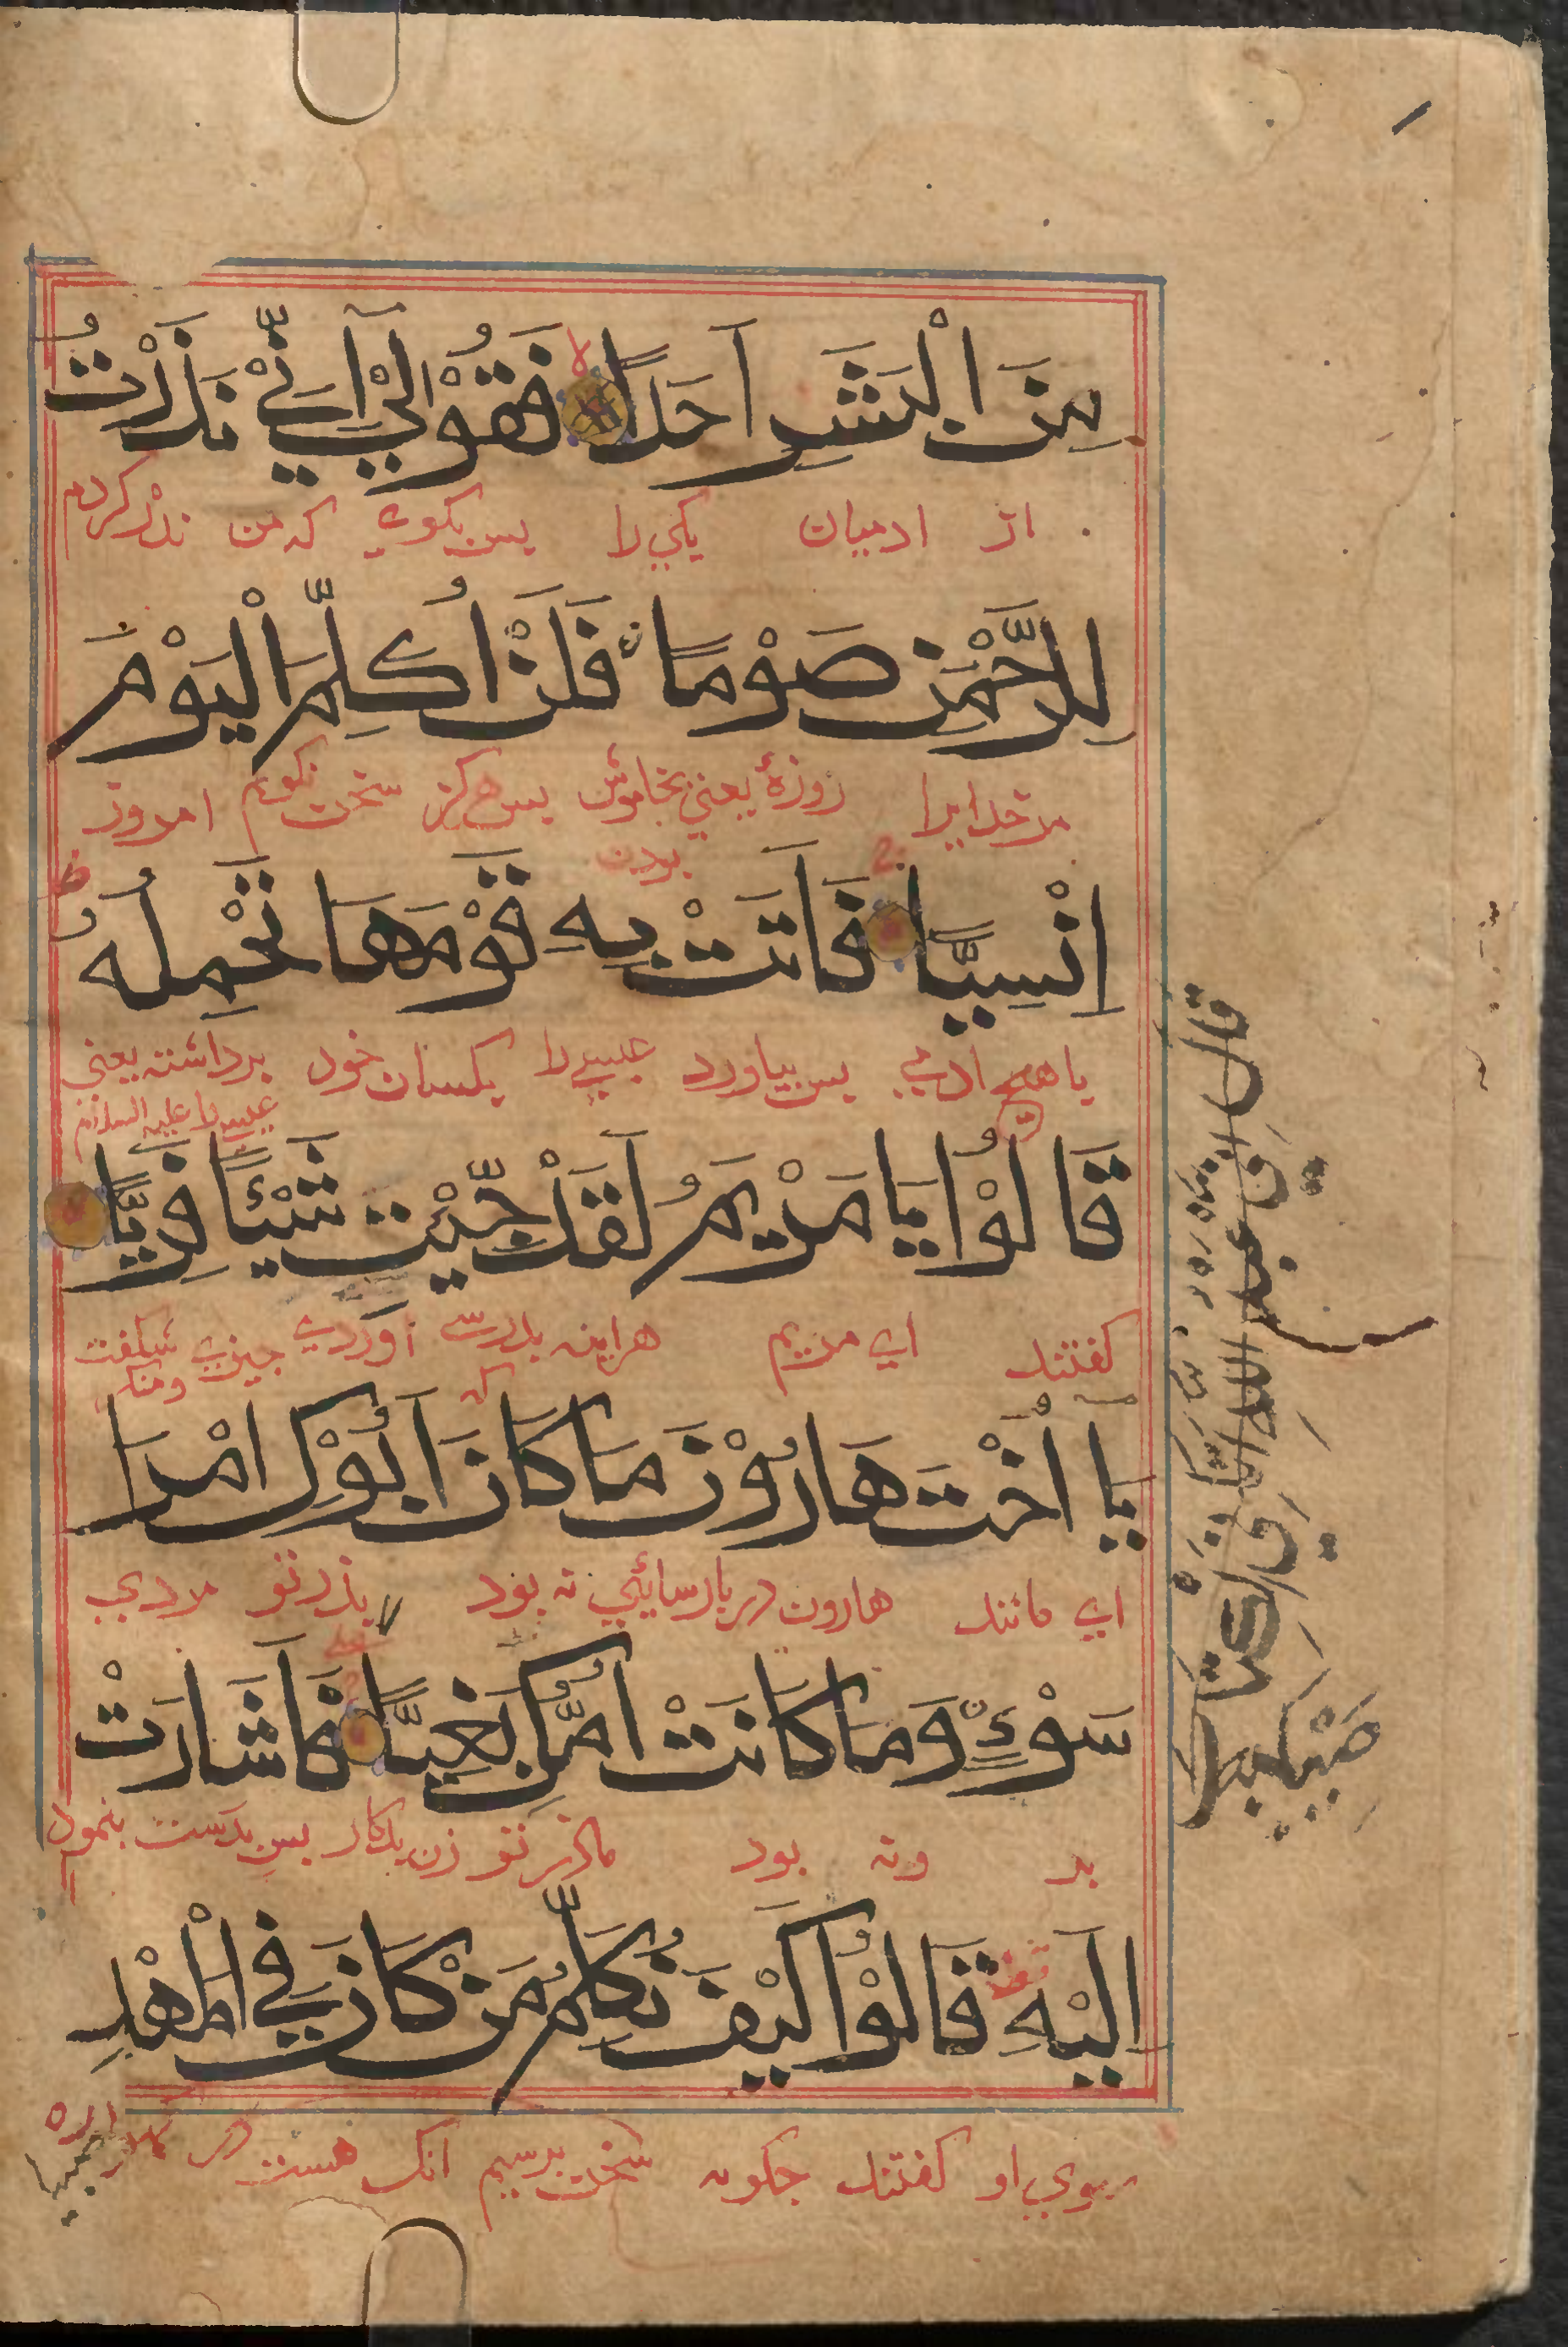 مِنَ الْبَشَرِ اَحَدًا فَقُوْلِيْٓ اِنِّيْ نَذَرْتُ
از ادميان يكي را پس بكوي كه من نذر كردم
لِلرَّحْمٰنِ صَوْمًا فَلَنْ اُكَلِّمَ الْيَوْمَ
مر خدايرا روزۀ يعني بخاموش پس هركز سخن نكويم امروز
بودن
اِنْسِيًّا فَاَتَتْ بِهٖ قَوْمَهَا تَحْمِلُهٗ
با هيچ ادمي پس بياورد عيسي را بكسان خود برداشته يعني
عيسي را عليه السلام
قَالُوْا يَا مَرْيَمُ لَقَدْ جِئْتِ شَيْئًا فَرِيًّا
كفتند اي مريم هراينه بدرستي اوردي چيزي شكفت
كه
يَآ اُخْتَ هَارُوْنَ مَا كَانَ اَبُوْكِ امْرَاَ
اي مانند هارون در پارسائي نه بود پدر تو مردي
سَوْءٍ وَمَا كَانَتْ اُمُّكِ بَغِيًّا فَاَشَارَتْ
بد ونه بود مادر تو زن بدكار پس بدست بنمود
اِلَيْهِ قَالُوْا كَيْفَ نُكَلِّمُ مَنْ كَانَ فِي الْمَهْدِ
بسوي او كفتند چكونه سخن پرسيم انك هست در كهواره
صبيا
قال اني عبد الله